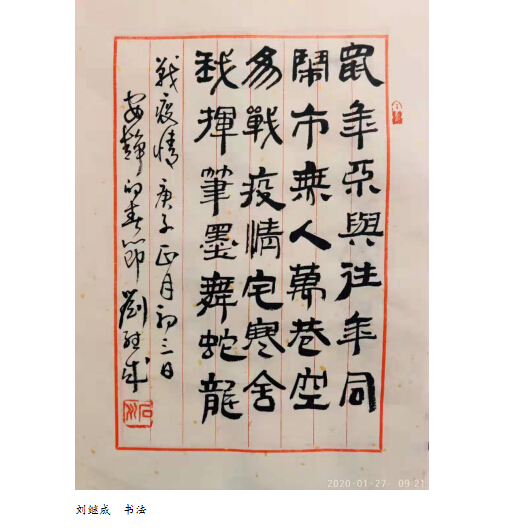 鼠年不與往年同
鬧市無人萬巷空
為戰疫情宅寒舍
我揮筆墨舞蛇龍
戰疫情 庚子正月初三日
安靜的春節 劉继成
2020-01-27 09:21
刘继成 书法